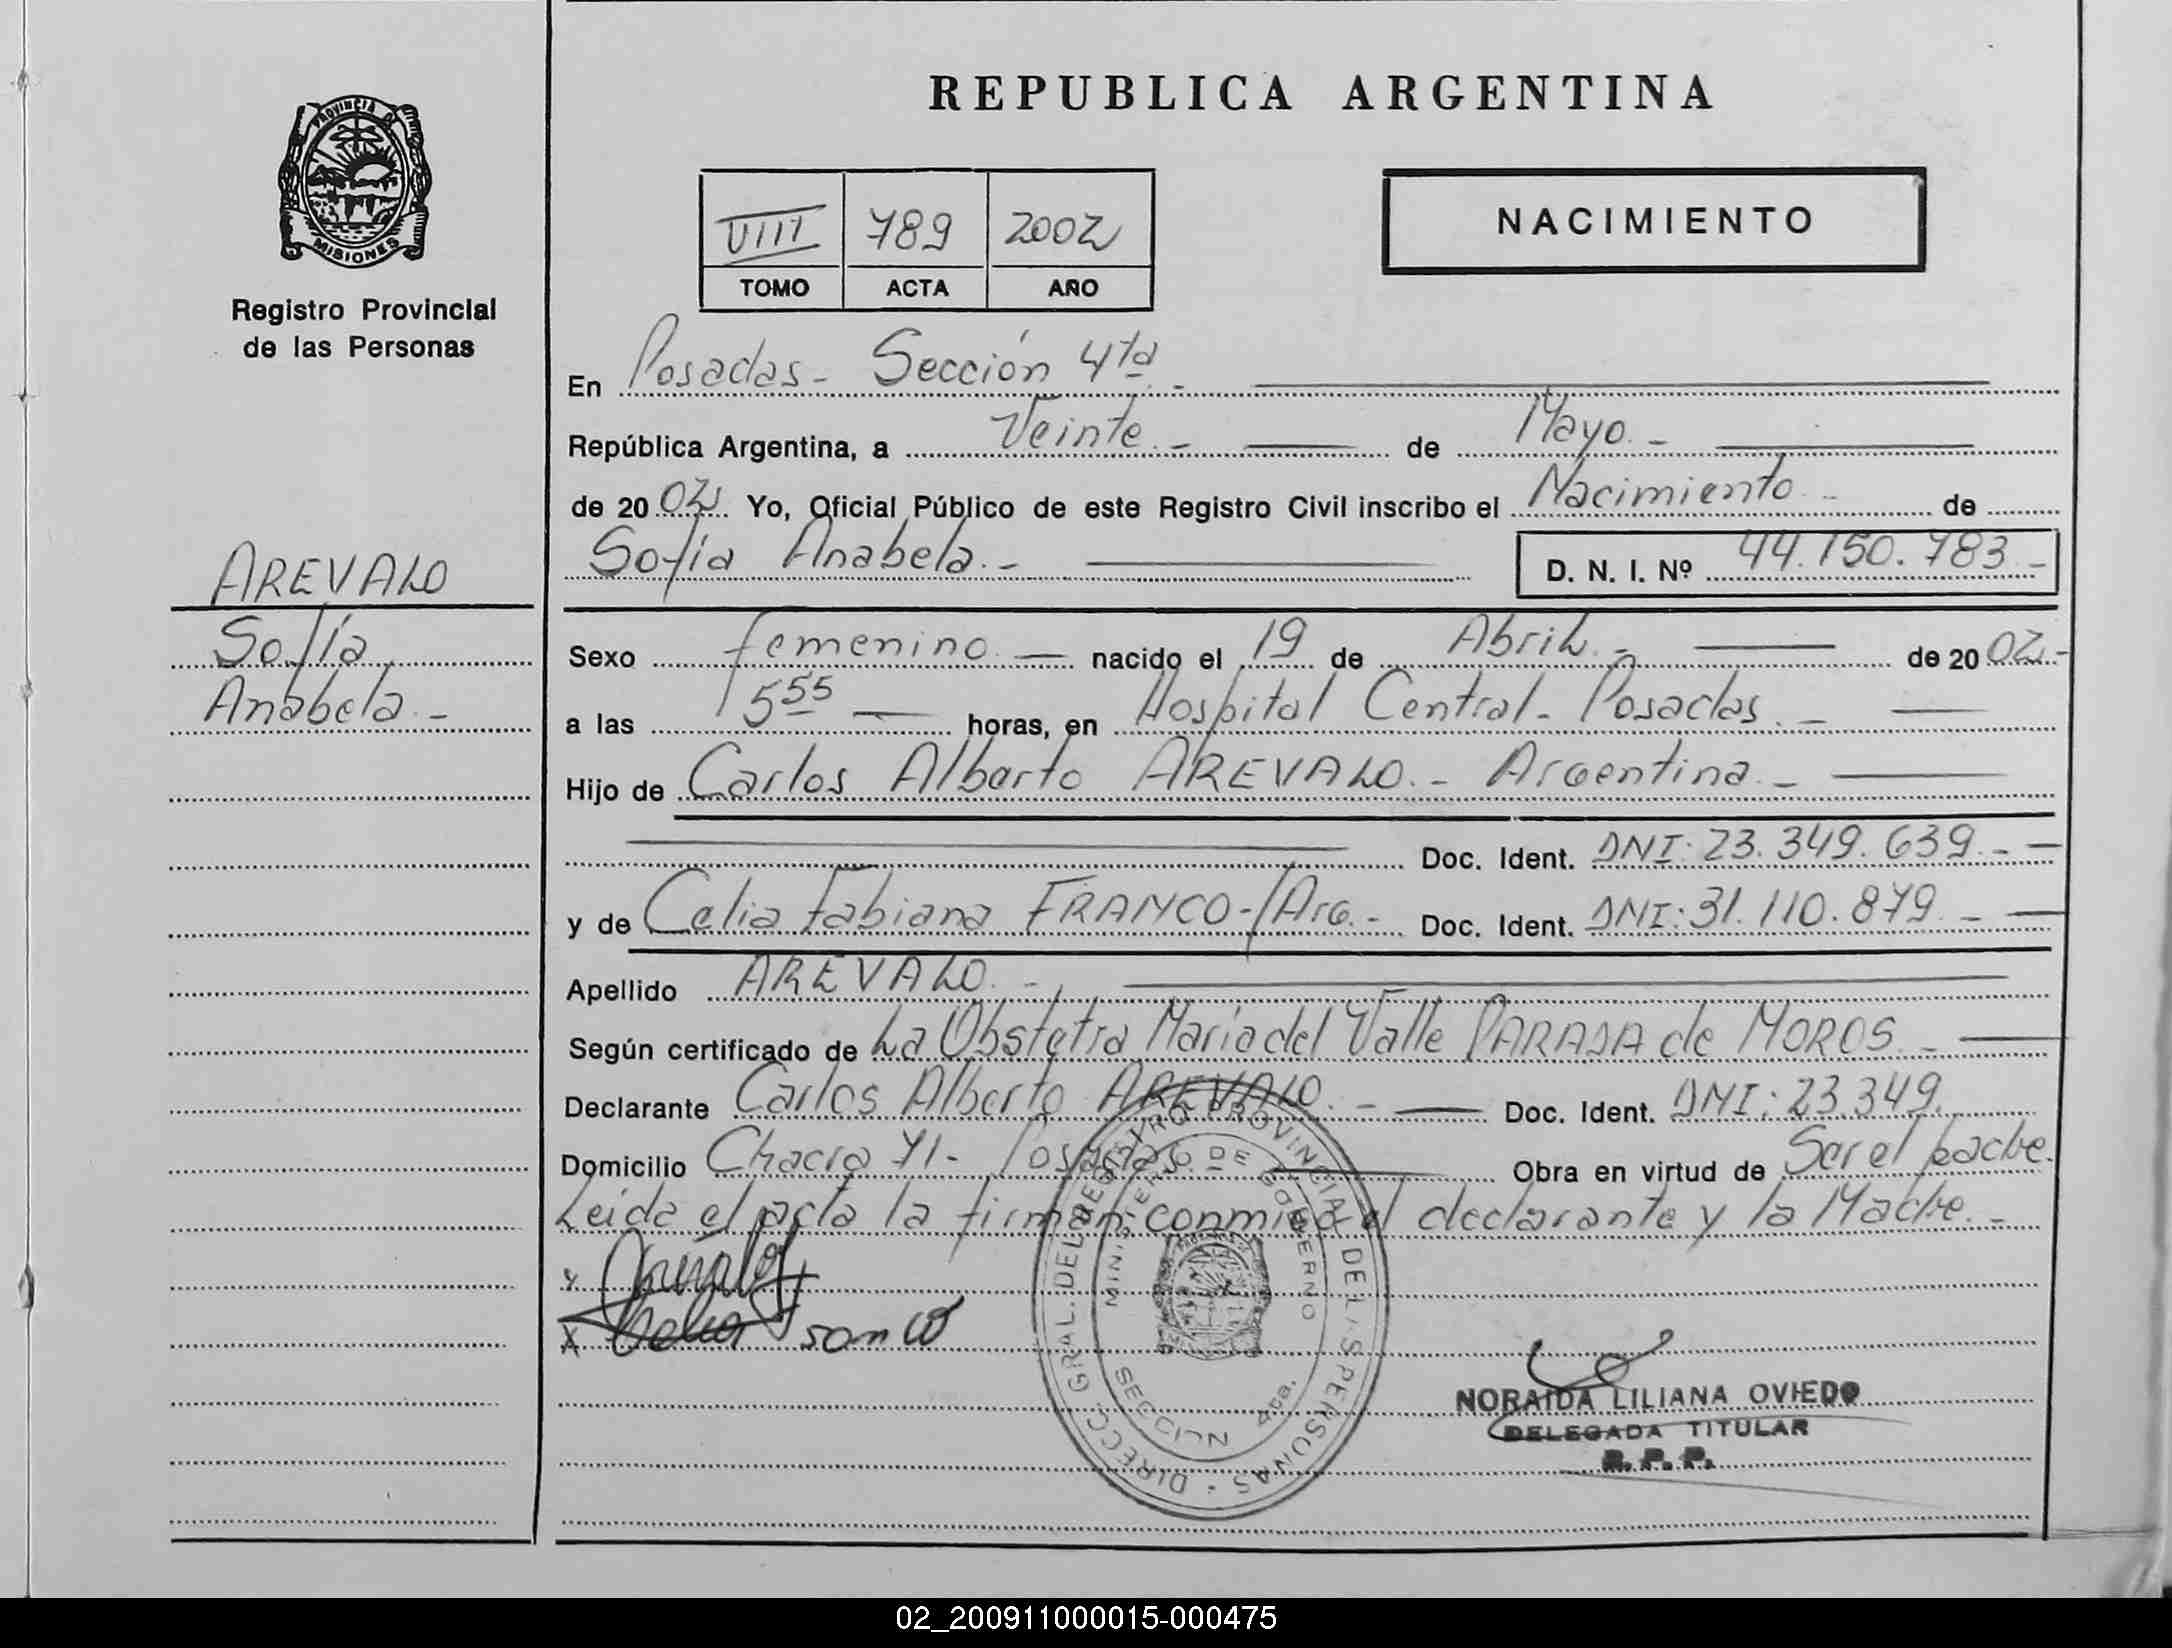 PROVINCIA DE
MISIONES
Registro Provincial
de las Personas
AREVALO
Sofía
Anabela.-
REPUBLICA ARGENTINA
VIII 789 2002
TOMO ACTA AÑO
NACIMIENTO
En Posadas- Sección 4ta.-
República Argentina, a Veinte.- de Mayo.-
de 2002 Yo, Oficial Público de este Registro Civil inscribo el Nacimiento.- de
Sofía Anabela.- D. N. I. Nº 44.150.783.-
Sexo femenino.- nacido el 19 de Abril.- de 2002.-
a las 15 55 horas, en Hospital Central- Posadas.-
Hijo de Carlos Alberto AREVALO.- Argentina.-
Doc. Ident. DNI: 23.349.639.-
y de Celia Fabiana FRANCO-/Arg.- Doc. Ident. DNI: 31.110.879.-
Apellido AREVALO.-
Según certificado de La Obstetra María del Valle PARADA de MOROS.-
Declarante Carlos Alberto AREVALO.- Doc. Ident. DNI: 23.349.
Domicilio Chacra 71- Posadas.- Obra en virtud de Ser el padre.
Leida el acta la firman conmigo el declarante y la Madre.-
DIRECC. GRAL. DEL REGISTRO PROVINCIAL DE LAS PERSONAS
MINISTERIO DE GOBIERNO
SECCION 4ta.
NORAIDA LILIANA OVIEDO
DELEGADA TITULAR
R.P.P.
02_200911000015-000475